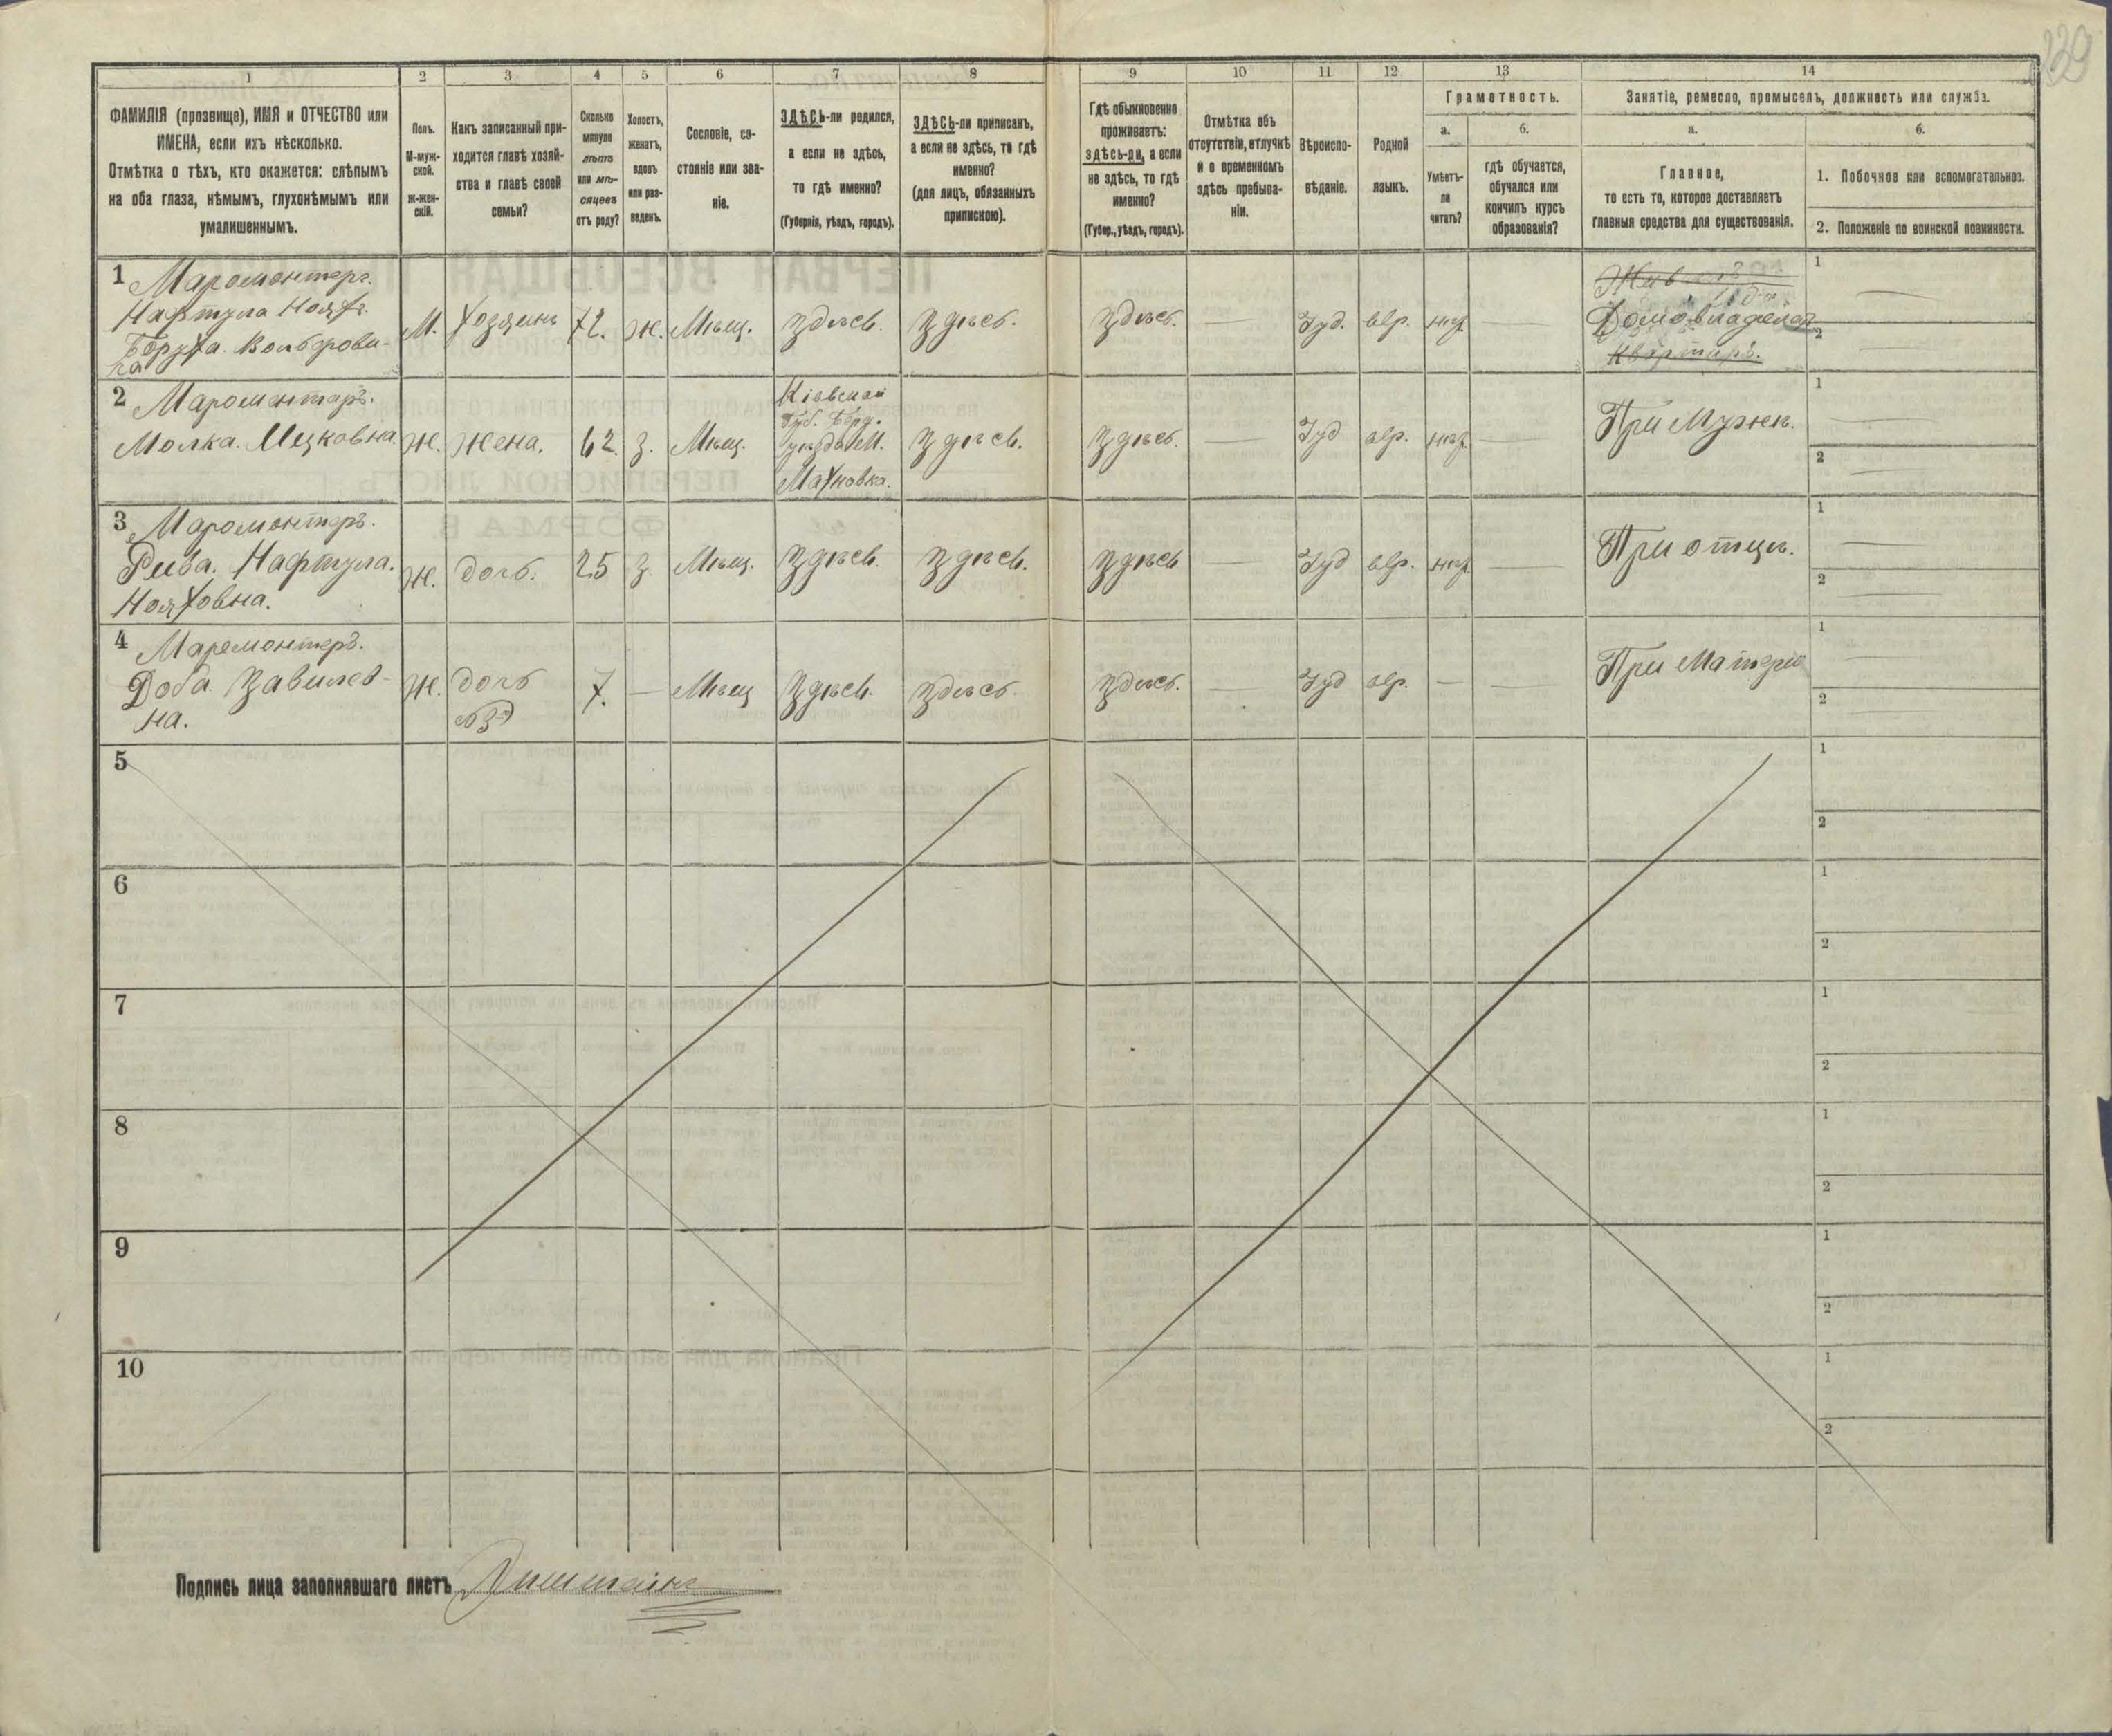 339
1 2 3 4 5 6 7 8 9 10 11 12 13 14
ФАМИЛІЯ (прозвище), ИМЯ и ОТЧЕСТВО или
ИМЕНА, если ихъ нѣсколько.
Отмѣтка о тѣхъ, кто окажется: слѣпымъ
на оба глаза, нѣмымъ, глухонѣмымъ или
умалишеннымъ.
Полъ.
М-муж-
ской.
Ж-жен-
скій.
Какъ записанный при-
ходится главѣ хозяй-
ства и главѣ своей
семьи?
Сколько
минуло
лѣтъ
или мѣ-
сяцевъ
отъ роду?
Холостъ,
женатъ,
вдовъ
или раз-
веденъ.
Сословіе, со-
стояніе или зва-
ніе.
ЗДѢСЬ-ли родился,
а если не здѣсь,
то гдѣ именно?
(Губернія, уѣздъ, городъ).
ЗДѢСЬ-ли приписанъ,
а если не здѣсь, то гдѣ
именно?
(для лицъ, обязанныхъ
припискою).
Гдѣ обыкновенно
проживаетъ:
здѣсь-ли, а если
не здѣсь, то гдѣ
именно?
(Губер., уѣздъ, городъ).
Отмѣтка объ
отсутствіи, отлучкѣ
и о временномъ
здѣсь пребыва-
ніи.
Вѣроиспо-
вѣданіе.
Родной
языкъ.
Грамотность.
а.
Умѣетъ-
ли
читать?
б.
гдѣ обучается,
обучался или
кончилъ курсъ
образованія?
Занятіе, ремесло, промыселъ, должность или служба.
а.
Главное,
то есть то, которое доставляетъ
главныя средства для существованія.
б.
1. Побочное или вспомогательное.
2. Положеніе по воинской повинности.
1 Маромонтеръ.
Нафтула Нояхъ.
Боруха. Вольфови-
ча
М. Хозяинъ 72. Ж. Мѣщ. Здѣсь. Здѣсь. Здѣсь. — Іуд. евр. —
Домовладелец
Квартиръ.
1
2
2 Маромонтаръ.
Молка. Ицковна.
Ж. Жена. 62. З. Мѣщ.
Кіевской
Губ. Берд.
уѣзда М.
Махновка.
Здѣсь. Здѣсь. — Іуд евр. — При Мужѣ.
1
2
3 Маромонтеръ.
Рива. Нафтула.
Нояховна.
Ж. дочь. 25 З. Мѣщ. Здѣсь. Здѣсь. Здѣсь — Іуд евр. — При отцѣ.
1
2
4 Маремонтеръ.
Доба. Завилев-
на.
Ж. дочь
№3
7. — Мѣщ Здѣсь. Здѣсь. Здѣсь. — Іуд евр. — — При Матери
1
2
5
1
2
6
1
2
7
1
2
8
1
2
9
1
2
10
1
2
Подпись лица заполнявшаго листъ